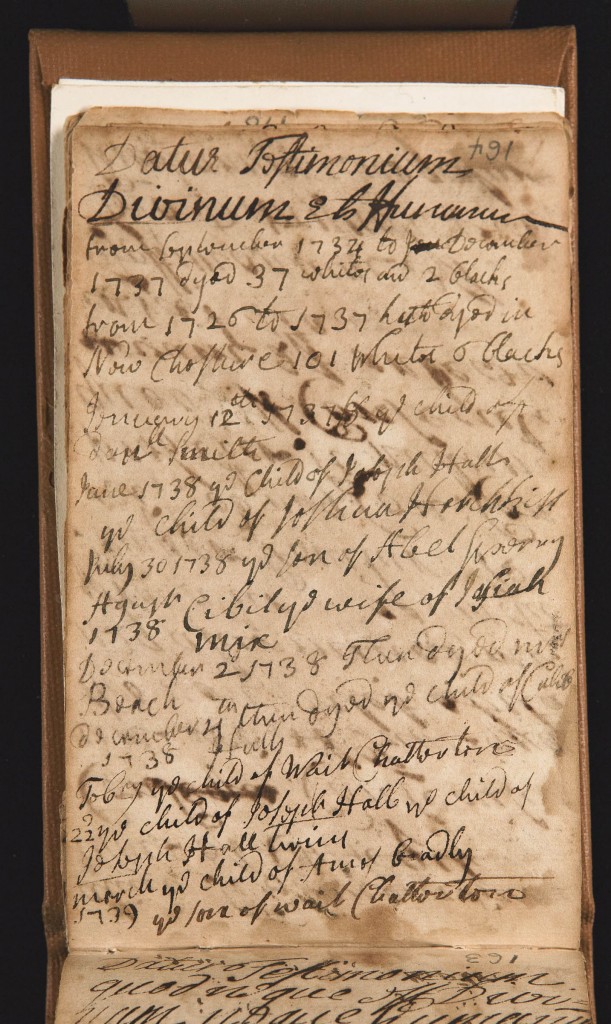 164
Datur Testimonium
Divinum et Humanum
from September 1734 to December
1737 dyed 37 whites and 2 blacks
from 1726 to 1737 hath dyed in
New Cheshire 101 whites 6 blacks
Jenuary 12th 1737/8 yd child of
Danll Smith
June 1738 yd Child of Joseph Hall
yd child of Joshua Hotchkiss
July 30 1738 yd son of Abel
Agust Cibil yd wife of Josiah
1738 mix
December 2d 1738 Then dyed mrs
Beach
december 4th then dyed yd child of Caleb
1738
Feby yd child of Wait Chatterton
22d yd child of Joseph Hall yd child of
Joseph Hall twins
march yd child of Amos bradly
1739 yd son of wait Chatterton
163
Datur Testimonium
quod